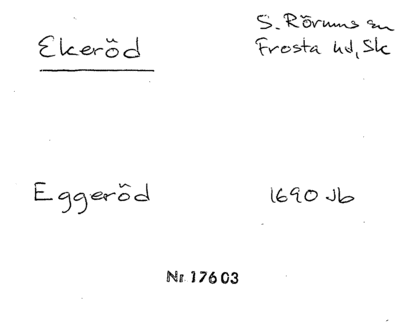 Ekeröd
S. Rörums sn
Frosta hd, Sk
Eggeröd 1690 Jb
Nr 17603